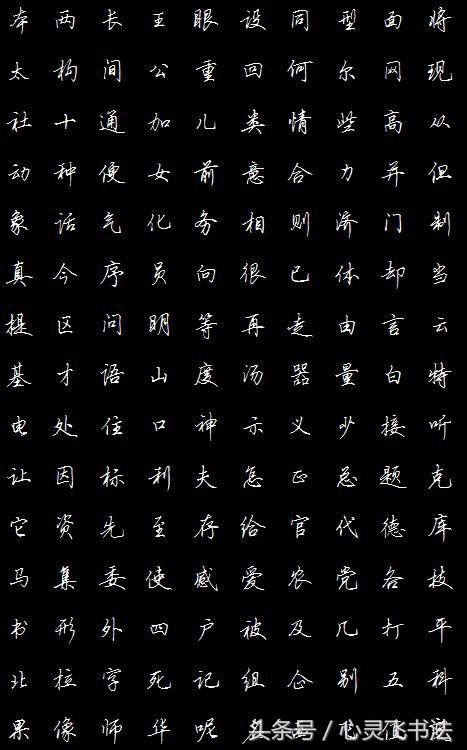 本 两 长 王 眼 设 同 型 面 将
太 构 间 公 重 回 何 尔 网 现
社 十 通 加 儿 类 情 些 高 从
动 种 便 女 前 意 合 力 并 但
象 话 气 化 务 相 则 济 门 制
真 今 序 员 向 很 已 体 却 当
提 区 问 明 等 再 走 由 言 云
基 才 语 山 度 汤 器 量 白 特
电 处 住 口 神 示 义 少 接 听
让 因 标 利 夫 怎 正 总 题 克
它 资 先 至 存 给 官 代 德 库
马 集 委 使 感 爱 农 党 各 技
书 形 外 四 户 被 及 几 打 平
北 拉 字 死 记 组 企 别 五 科
果 像 师 华 呢
头条号 / 心灵飞书法